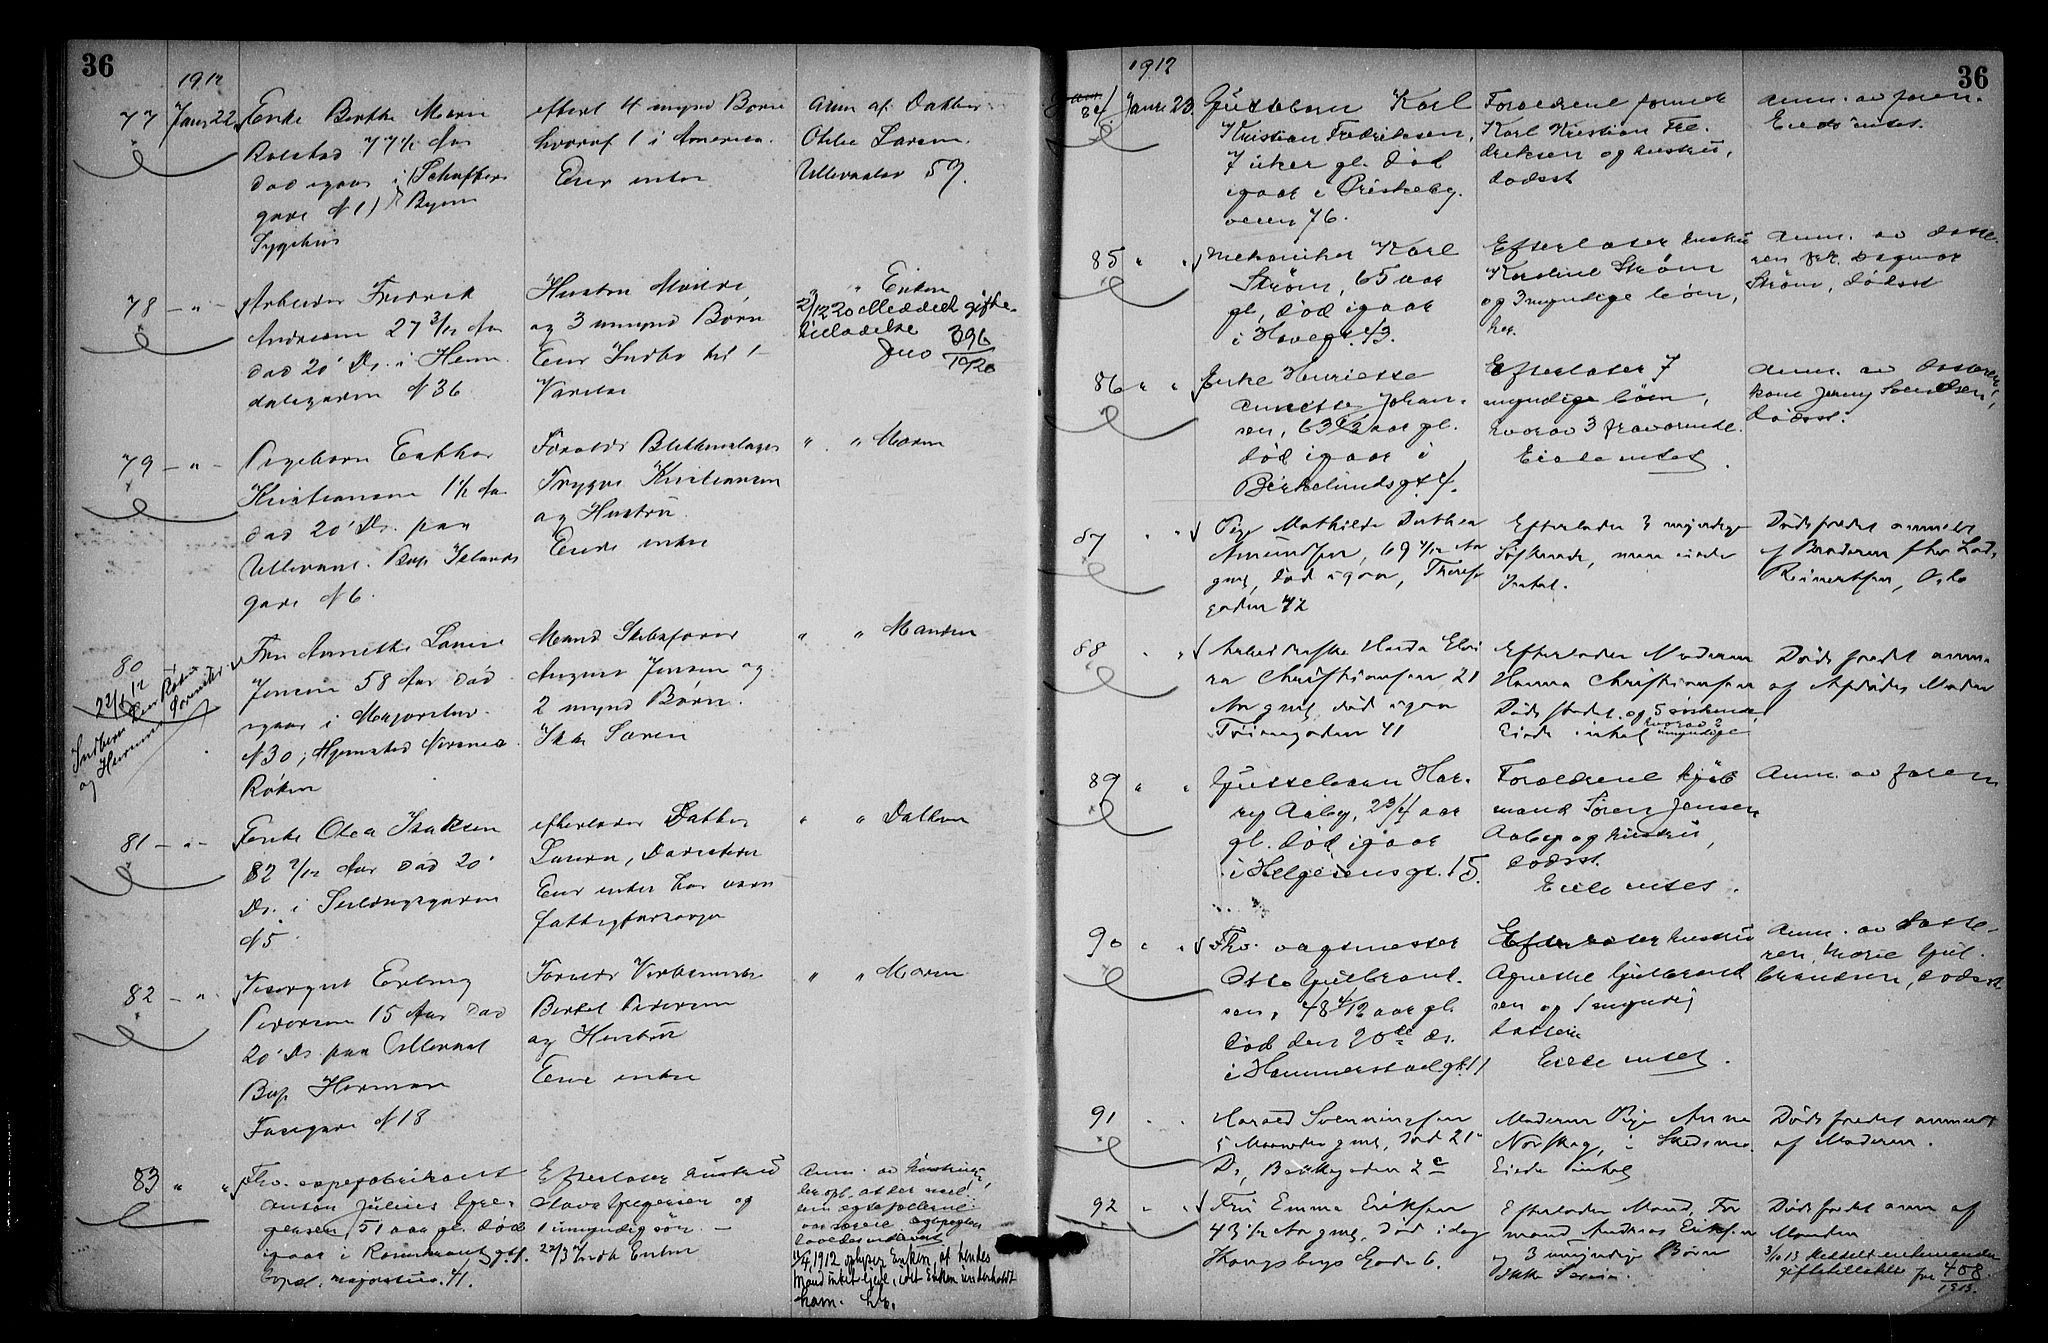 36
1912
77 Janr 22. Enke Berthe Marie
Rolstad 77 1/2 Aar
død igaar i Schaftes
gade N 1) Byens
Sygehus
efterl 4 mynd Børn
hvoraf 1 i Amerika.
Eier intet
Anm af. Datter
Othilie Larsen
Ullevaalsv 59.
78 — " — Arbeider Fredrik
Andresen 27 3/12 Aar
død 20' Ds. i Heim
dalsgaden N 36
Hustru
og 3 umynd Børn
Eier Indbo til
" Enken
2/12 20 Meddelt gifte-
tilladelse
Jno 396
1920
79 — " — Pigebarn Esther
Kristiansen 1 1/2 Aar
død 20' Ds. paa
Ullevaal. Bop Islands
gade N 6.
Foreldre Blikkenslager
Trygve Kristiansen
og Hustru.
Eiende intet
" " Moren
80
Fru Annette Lovise
Jensen 58 Aar død
igaar i Majorstuv.
N 30; Hjemsted Nærsnes
Røken
Mand Skibsfører
August Jensen og
2 mynd Børn.
Ikke Særeie
" " Manden
22/1 12
Indberr Lensm. Røken
og Hurum Sorenskr.
81 — " — Enke Olea Isaksen
82 2/12 Aar død 20'
Ds. i Seilduksgaden
N 5
efterlader Datter
Laura,
Eier intet har været
fattigforsørget
" " Datteren
82 — " — Visergut Erling
Pedersen 15 Aar død
20' Ds paa Ullevaal
Bop Herman
Fossgade N 18
Foreldre Verksmester
Bertel Pedersen
og Hustru
Eier intet
" " Moren
83 " " Fhv. sæpefabrikant
Anton Julius Gre-
gersen, 51 aar gl. død
igaar i Rosenkrantzgt.
bopæl. Majorstuv. 41.
Efterlater hustru
Olava Gregersen og
1 umyndig søn. —
22/3 Indk Enken
Anm. av hustruen,
der opl. at der mel-
lem egtefællerne
var særeie
12/4 1912 oplyser Enken, at hendes
Mand intet Eiede, idet Enken underholdt
ham.
36
1912
84 Janr. 23. Guttebarn Karl
Kristian Fredriksen,
7 uker gl. død
igaar i Briskeby-
veien 76.
Foreldrene formd
Karl Kristian Fre-
driksen og hustru,
dødsst
Anm. av faren.
Eiede intet.
85 " " Mekaniker Karl
Strøm, 65 aar
gl., død igaar
i Havegt. 13.
Efterlater hustru
Karoline Strøm
og 3 myndige børn,
her.
Anm. av datte-
ren frk. Dagmar
Strøm, dødsst
86 " " Enke Henriette
Annette Johan-
sen, 63 1/2 aar gl.
død igaar i
Birkelundsgt 4.
Efterlater 7
myndige børn,
hvorav 3 fraværende.
Eiede intet.
Anm. av datteren
kone Jenny Svendsen,
dødsst.
87 " " Pige Mathilde Dorthea
Amundsen, 69 1/12 Aar
gml, død igaar, Therese
gaden 42
Efterlader 3 myndige
Søskende, men eiede
Intet.
Dødsfaldet anmeldt
af Broderen fhv Lods
Reinertsen, Oslo
88 " " Arbeiderske Hilda Elvi
ra Christiansen 21
Aar gml, død igaar
Toiengaden 41
Efterlader Moderen
Hanna Christiansen
Dødsstedet. og 5 søskende
hvorav 2
umyndige
Eiede intet
Dødsfaldet anm
af Afdødes Moder
89 " " Guttebarn Har-
ry Aaby, 2 3/4 aar
gl. død igaar
i Helgesensgt. 15.
Foreldrene kjøb
mand Søren Jensen
Aaby og hustru,
dødsst.
Eiede intet.
Anm. av faren
90 " " Fhv. vagtmester
Otto Gulbrand-
sen, 48 4/12 aar gl.
død den 20de ds.
i Hammerstadgt. 11
Efterlater hustru
Agnethe Gulbrand
sen og 1 myndig
datter
Eiede intet.
Anm. av datte-
ren, Marie Gul-
brandsen, dødsst
91 " " Harald Svenningsen
5 Maaneder gml, død 21'
Ds, Bakkegaden 2 c
Moderen Pige Anna
Norskog, i Skedsmo
Eiede intet
Dødsfaldet anmeldt
af Moderen.
92 " " Fru Emma Eriksen
43 1/2 Aar gml, død i dag
Kongsbergs Gade 6.
Efterlader Mand, For
mand Andreas Eriksen
og 3 myndige Børn
Ikke Særeie.
Dødsfaldet anm af
Manden
3/10 13 Meddelt enkemanden
giftetilladelse jno 408
1913.